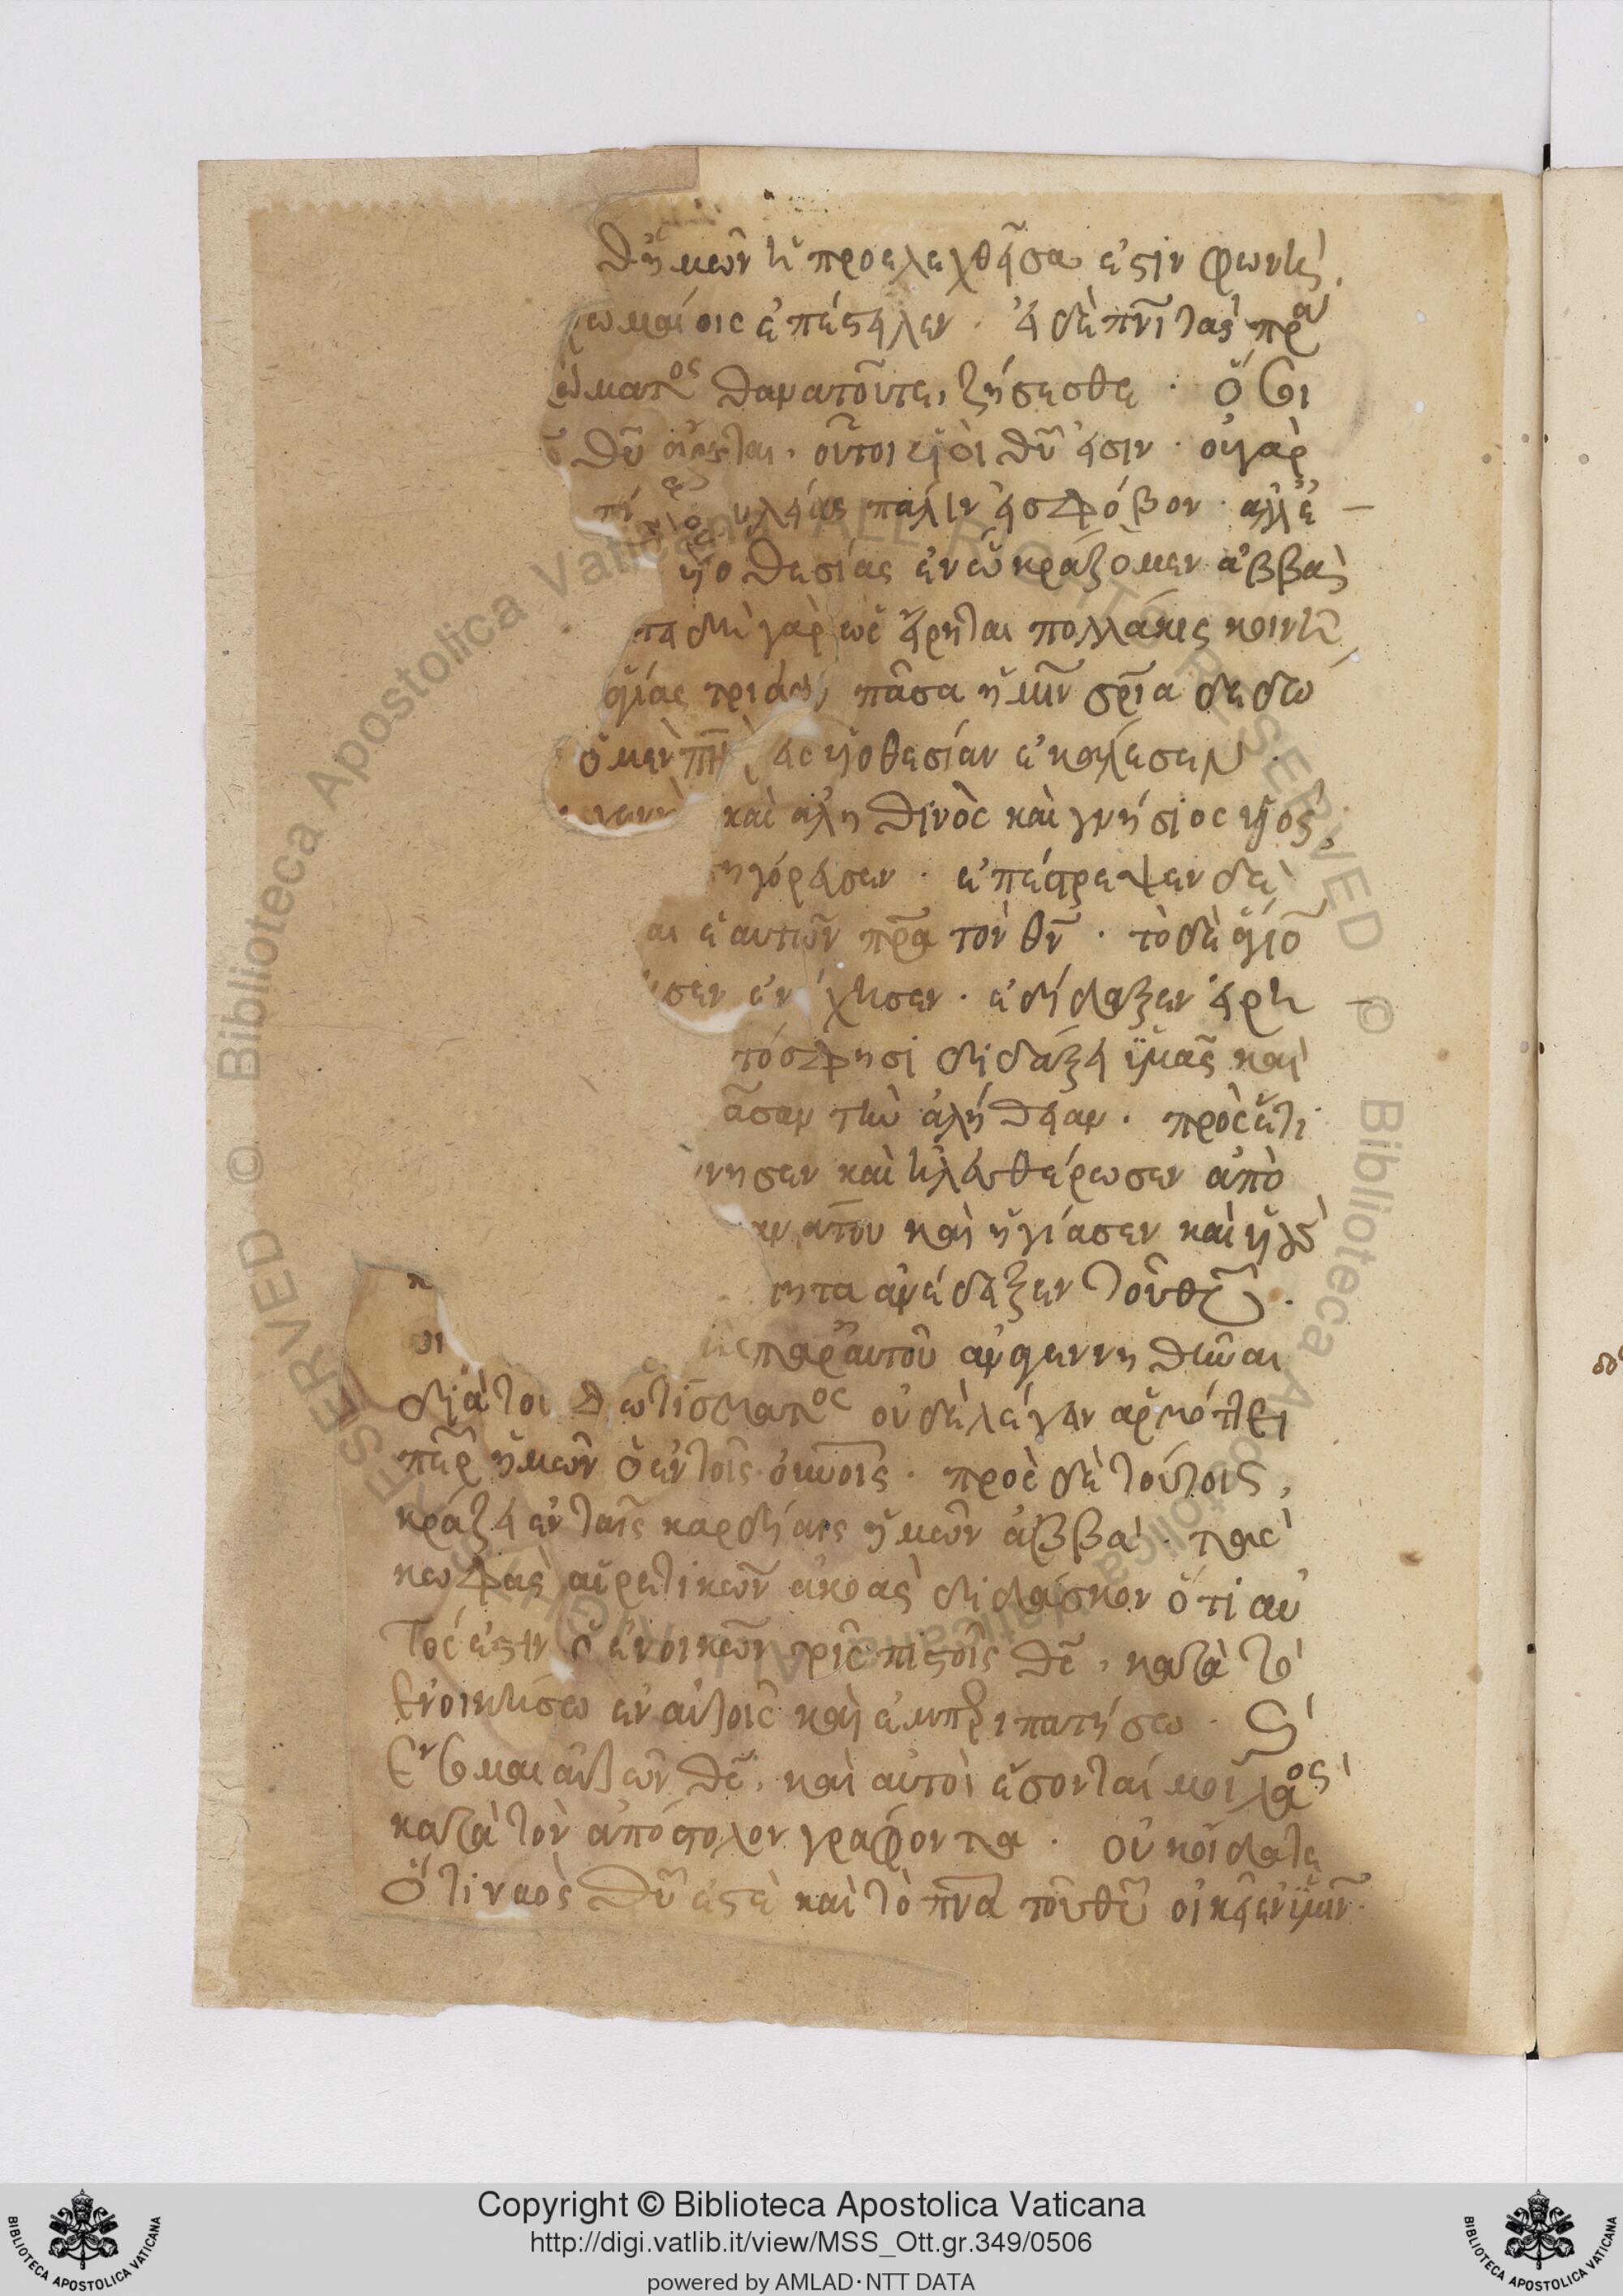 ἡμῶν ἡ προελεχθεῖσα ἐστὶν φωνή,
ρωμαίοις ἐπέστειλεν · εἰ δὲ πνι τὰς πρα
ώματος θανατοῦτε, ζήσεσθε · ὅτι
θυ οὗτοι υἱοὶ θυ εἰσιν · οὐ γὰρ
δουλείας πάλιν εἰς φόβον · ἀλλ ἐ
υἱοθεσίας ἐν ὧ κράζομεν ἀββᾶ
γὰρ ὡς εἴρηται πολλάκις κοινῆ
ἁγίας τριάδος πᾶσα ἡμῖν σρία δεδω
ὁ μὲν πηρ εἰς υἱοθεσίαν ἐκάλεσεν ·
καὶ ἀληθινὸς καὶ γνήσιος υἱός,
ηγόρασεν · ἐπέστρεψεν δὲ
ἑαυτῶν πρα τὸν θν · τὸ δὲ ἅγιο
σεν ἐδίδαξεν εἰρη
τός φησι διδάξει ὑμᾶς καὶ
ᾶσαν τὴν ἀλήθειαν · πρὸς ἔτι
νησεν καὶ ἠλευθέρωσεν ἀπὸ
ανάτου καὶ ἡγίασεν καὶ υἱοὺ
ητα ἀνέδειξεν τοῦ θυ ·
παρ αὐτοῦ ἀναγεννηθῆναι
διὰ τοῦ φωτίσματος οὐδὲ λέγειν ἁρμόττει
περ ἡμῶν ὁ ἐν τοῖς οὐνοῖς · πρὸς δὲ τούτοις,
κράζει ἐν ταῖς καρδίαις ἡμῶν ἀββᾶ · τὰς
κωφὰς αἱρετικῶν ἀκοὰς διδάσκον ὅτι αὐ
τός ἐστιν ὁ ἐνοικῶν τοῖς πιστοῖς θς, κατὰ τὸ
ἐνοικήσω ἐν αὐτοῖς καὶ ἐμπεριπατήσω · καὶ
ἔσομαι αὐτῶν θς, καὶ αὐτοὶ ἔσονταί μοι λαός
κατὰ τὸν ἀπόστολον γράφοντα · οὐκ οἴδατε
ὅτι ναὸς θυ ἐστὲ καὶ τὸ πνα τοῦ θυ οἰκεῖ ἐν ὑμῖν
Copyright © Biblioteca Apostolica Vaticana
http://digi.vatlib.it/view/MSS_Ott.gr.349/0506
powered by AMLAD·NTT DATA
BIBLIOTECA APOSTOLICA VATICANA
BIBLIOTECA APOSTOLICA VATICANA